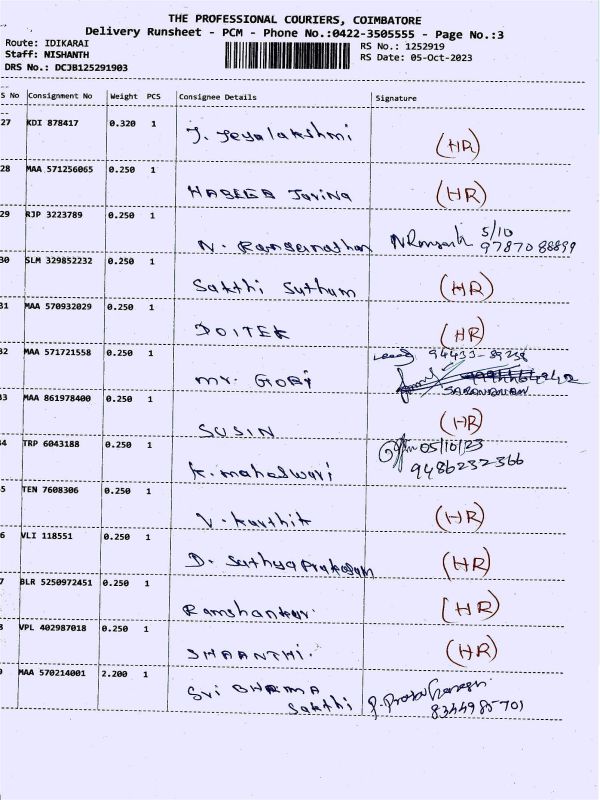 THE PROFESSIONAL COURIERS, COIMBATORE
Delivery Runsheet - PCM - Phone No.:0422-3505555 - Page No.:3
Route: IDIKARAI
RS No.: 1252919
Staff: NISHANTH
RS Date: 05-Oct-2023
DRS No.: DCJB125291903
S No Consignment No Weight PCS Consignee Details Signature
27 KDI 878417 0.320 1 J. Jeyalakshmi (HR)
28 MAA 571256065 0.250 1 HABEEB Jarina (HR)
29 RJP 3223789 0.250 1 N. Ranganathan 5/10
97870 88899
30 SLM 329852232 0.250 1 Sakthi Sutham (HR)
31 MAA 570932029 0.250 1 DOITEK (HR)
32 MAA 571721558 0.250 1 Mr. GOBI 94433-89238
SARAVANAN
33 MAA 861978400 0.250 1 SUSIN (HR)
34 TRP 6043188 0.250 1 K. Maheswari 05/10/23
9486232366
5 TEN 7608306 0.250 1 V. Karthik (HR)
6 VLI 118551 0.250 1 D. Sathyaprakasam (HR)
7 BLR 5250972451 0.250 1 Ramshankar. (HR)
8 VPL 402987018 0.250 1 SHAANTHI. (HR)
9 MAA 570214001 2.200 1 Sri BHARMA
Sakthi 8344985701